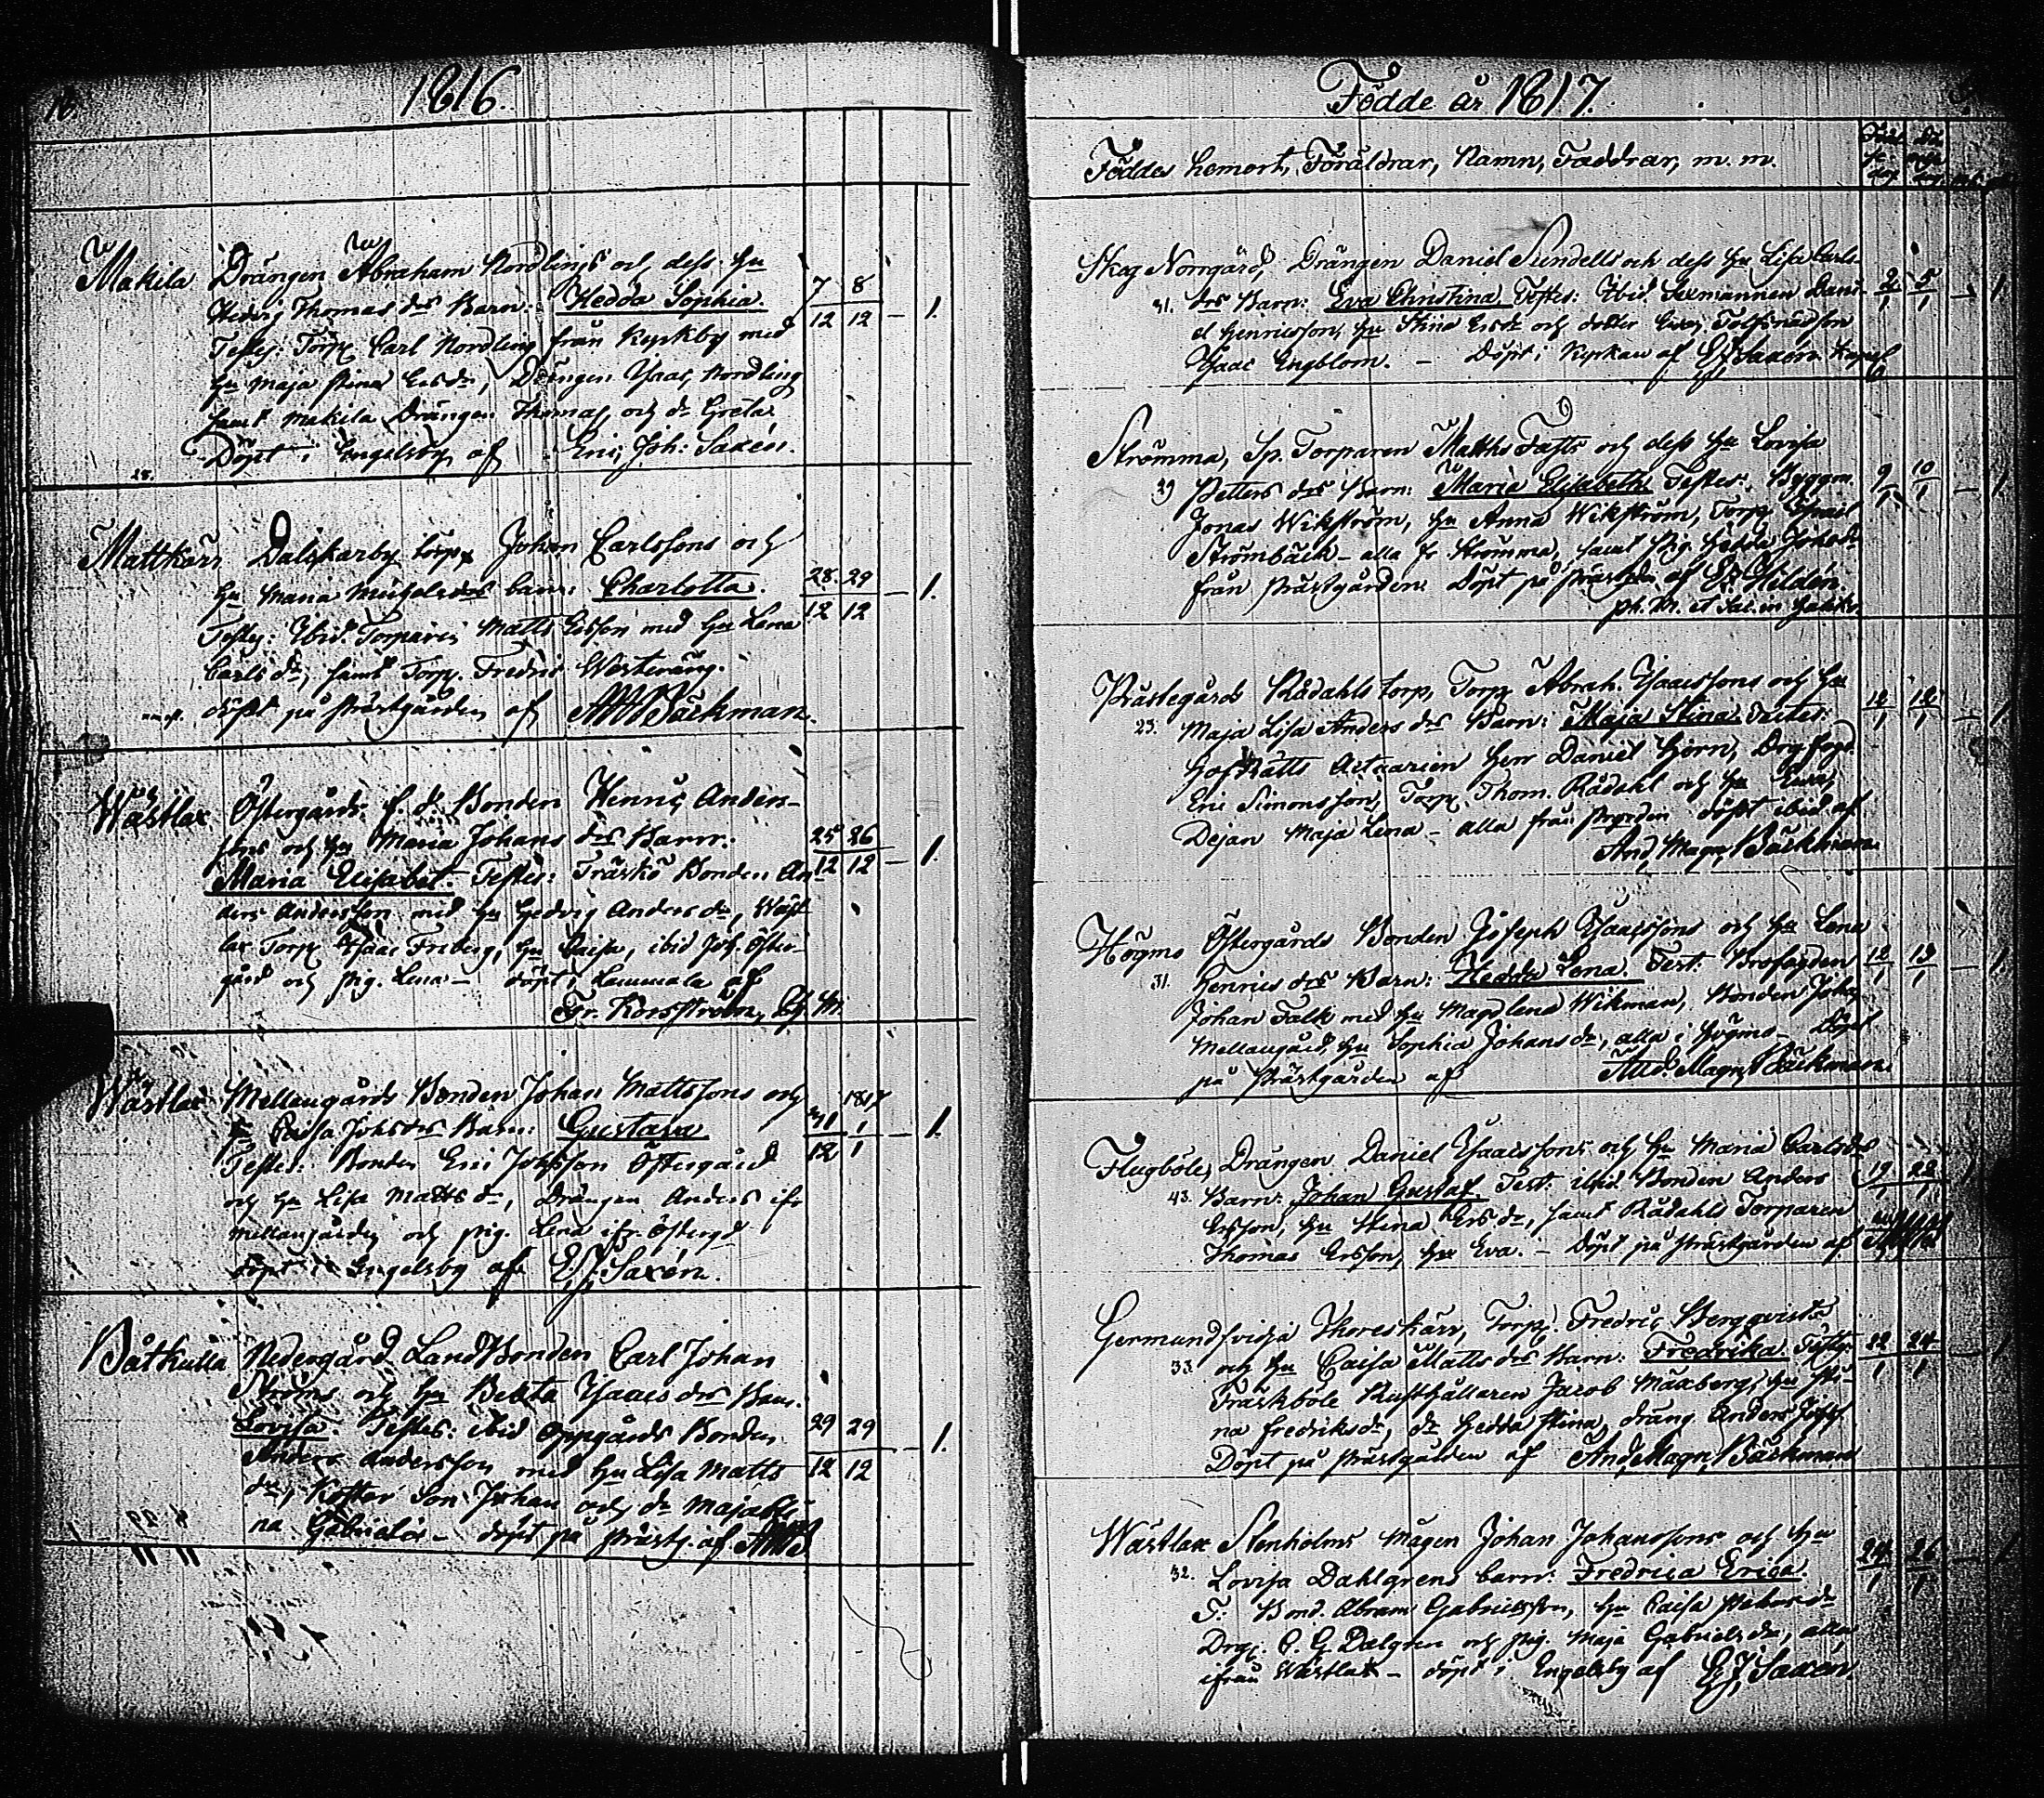 1816.
Makila Drängen Abraham Nordlings och dess hu
Hedvig Thomas drs Barn: Hedda Sophia.
7 8
12 12 — 1.
Testes: Torp Carl Nordling från Kyrkby med
hu Maja Stina Ersdr, Drängen Isaac Nordling
samt Makila Drängen Thomas och dr Greta
Döpt i Engelsby af Eric Joh: Saxén.
28.
Mattkärr Dalskarby torp Johan Carlssons och
hu Maria Michels drs barn: Charlotta.
28. 29
12 12 — 1.
Testes: Ibid. Torparen Matts Ersson med hu Lena
Carlsdr, samt Torp. Fredric Westeräng.
döpt på Prästgården af AMBäckman.
Wästlax Östergårds f. d. Bonden Henric Anders-
sons och hu Maria Johans drs Barn.
25 26
12 12 — 1.
Maria Elisabet. Testes: Träskö Bonden An-
ders Andersson med hu Hedvig Anders dr, Wäst-
lax Torp Isaac Friberg, hu Caisa, ibid Joh. Öster-
gård och pig. Lena — döpt i Lammala af
Fr. Korsström,
Wästlax Mellangårds Bonden Johan Mattssons och
hu Caisa Johsdrs Barn: Gustava
1817
31 1
12 1 — 1.
Testes: Bonden Eric Johsson Östergård
och hu Lisa Mattsdr, Drängen Anders ifr
Mellangården och pig. Lena ifr Östergd
döpt i Engelsby af EJSaxén.
Båtkulla Nedergård LandBonden Carl Johan
Ströms och hu Beata Isaacs drs Barn.
Lovisa. Testes: ibid Oppgårds Bonden
29 29
12 12 — 1.
Anders Andersson med hu Lisa Matts
dr, Koster Son Johan och dr Majasti-
na Gabriels — döpt på Prästg. af AMB
Födde år 1817.
Föddes hemort, Föräldrar, Namn, Faddrar, m. m.
Skog Norrgård, Drängen Daniel Sundells och dess hu Lisa Carls-
31. drs Barn: Eva Christina Testes: Ibid. Sexmannen Dani-
2 5
1 1 — 1.
el Henricsson, hu Stina Ersdr och dotter Eva,
Isaac Engblom. — Döpt i Kyrkan af EJSaxén
Strömma, Sp. Torparen Matths Fasts och dess hu Lovisa
39 Petters drs Barn: Maria Elisabeth Testes: Byggm.
9 10
1 1 — 1
Jonas Wikström, hu Anna Wikström, Torp
Strömbäck — alla fr Strömma, samt pig. Hedda Johsdr
från Prästgården. Döpt på Prästgdn af Hildén
Prästegårds Rådahls torp, Torp Abrah. Isaacssons och hu
23. Maja Lisa Anders drs Barn: Maja Stina Testes:
12 12
1 1 — 1
HofRätts Actuarien Herr Daniel Hjorn, Drg
Eric Simonsson, Torp. Thom. Rådahl och hu Eva,
Dejan Maja Lena — alla från döpt ibid af
And. Magn. Bäckman.
Högmo Östergårds Bonden Joseph Isaacssons och hu Lena
31. Henrics drs Barn: Hedda Lena. Test: Brofogden
12 13
1 1 — 1
Johan Falk med hu Magdlena Wikman, Bonden Johan
Mellangård, hu Sophia Johansdr, alla i Högmo — Döpt
på Prästgården af And. Magn. Bäckman.
Flugböle, Drängen Daniel Isaacssons och hu Maria Carlsdrs
43. Barn: Johan Gustaf. Test: ibid Bonden Anders
19 22
1 1
Ersson, hu Stina Ersdr, samt Rådahls Torparen
Thomas Ersson, hu Eva. — Döpt på Prästgården af
Germundsvidja Thoreskärr, Torp. Fredric Bergqvists
33. och hu Caisa Matts drs Barn: Fredrika. Testes:
22 24
1 1 — 1
Träskböle Rusthållaren Jacob Maxberg, hu Sti-
na Fredriksdr, dr Hedda Stina, dräng Anders
Döpt på Prästgården af And. Magn. Bäckman
Wästlax Stenholms Mågen Johan Johanssons och hu
32. Lovisa Dahlgrens barn: Fredrica Erica.
24 26
1 1 — 1
T: Bond. Abram Gabrielsson, hu Caisa
Drg. C. G. Dalgren och pig. Maja Gabrielsdr, alla
ifrån Wästlax — döpt i Engelsby af EJSaxén